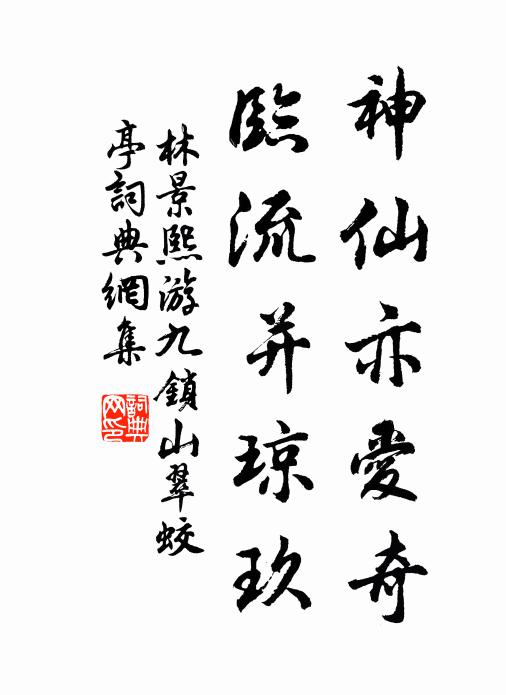 神仙亦愛奇
臨流并琼玖
林景熙游九鎖山翠蛟
亭詞典網集
詞典
网印